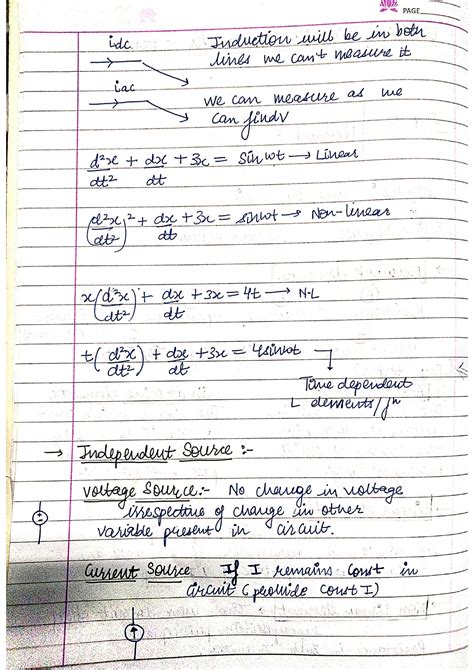 PAGE
idc
Induction will be in both
lines we can't measure it
iac
we can measure as we
can find v
d²x/dt² + dx/dt + 3x = Sin wt → Linear
(d²x/dt²)² + dx/dt + 3x = sinwt → Non-linear
x(d²x/dt²) + dx/dt + 3x = 4t → N-L
t(d²x/dt²) + dx/dt + 3x = 4sinwt
Time dependent
L elements/fⁿ
→ Independent Source :-
Voltage Source:- No change in voltage
irrespective of change in other
variable present in circuit.
Current Source : If I remains const in
circuit (provide const I)